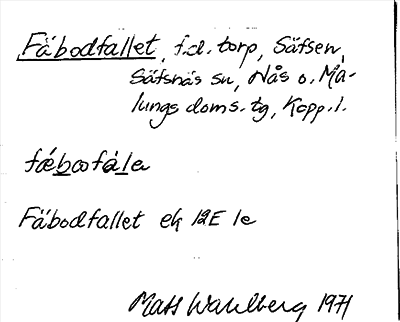 Fäbodfallet, f.d. torp, Säfsen,
Säfsnäs sn, Nås o. Ma-
lungs doms. tg, Kopp. l.
fæbωofála
Fäbodfallet ek 12E 1e
Mats Wahlberg 1971